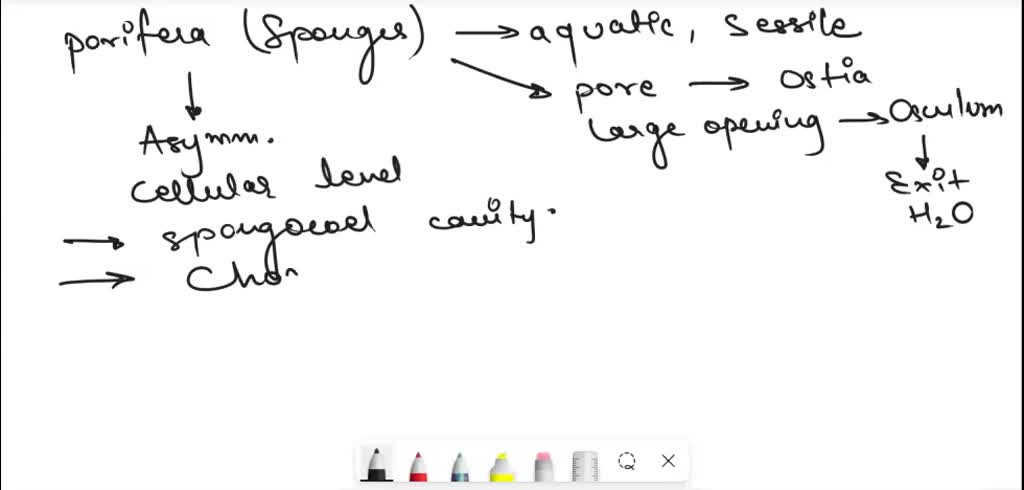 porifera (Sponges) → aquatic, sessile
pore → Ostia
Large opening → Osculum
Exit
H₂O
Asymm.
cellular level
→ spongocoel cavity.
→ Chon